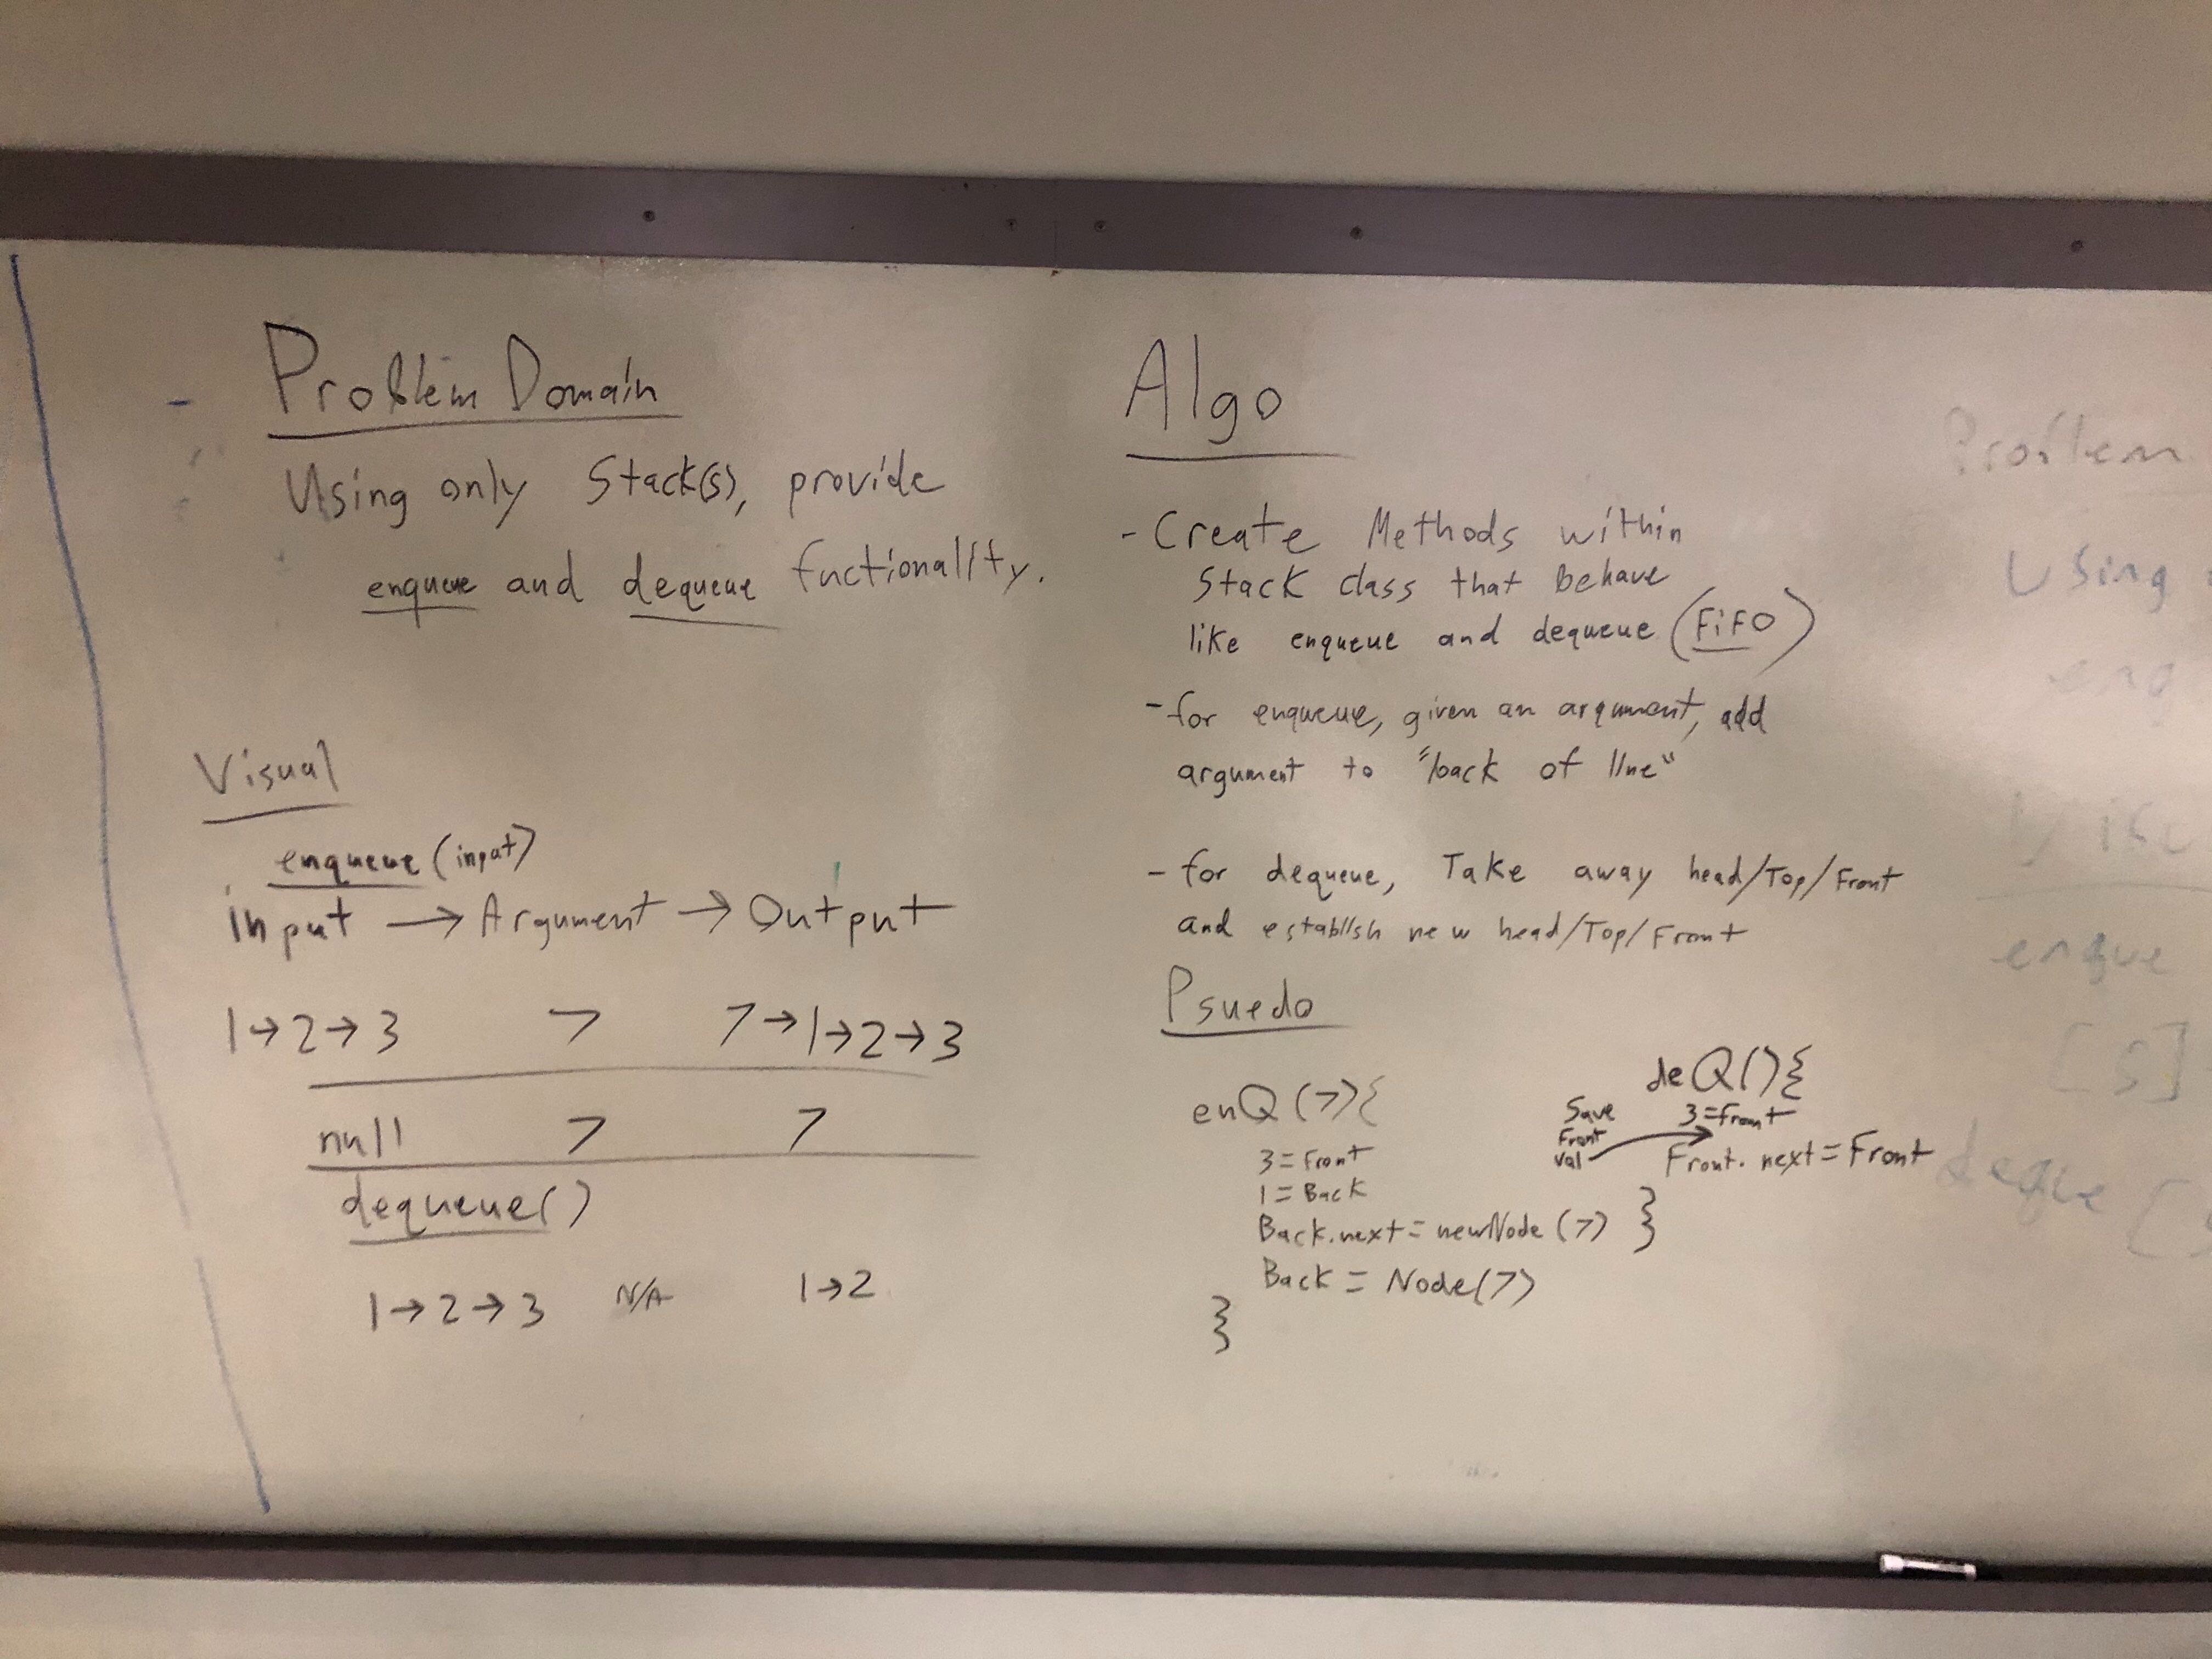 - Problem Domain
Using only Stack(s), provide
enqueue and dequeue fuctionality.
Visual
enqueue (input)
input → Argument → Output
1→2→3 7 7→1→2→3
null 7 7
dequeue()
1→2→3 N/A 1→2
Algo
- Create Methods within
Stack class that behave
like enqueue and dequeue (FiFO)
- for enqueue, given an argument, add
argument to "back of line"
- for dequeue, Take away head/Top/Front
and establish new head/Top/Front
Psuedo
enQ (7){
3 = Front
1 = Back
Back.next = newNode (7)
Back = Node(7)
}
deQ(){
3 = front
Save
Front
val
Front. next = Front
}
Problem
Using
enq
Visu
enque
[5]
deque [